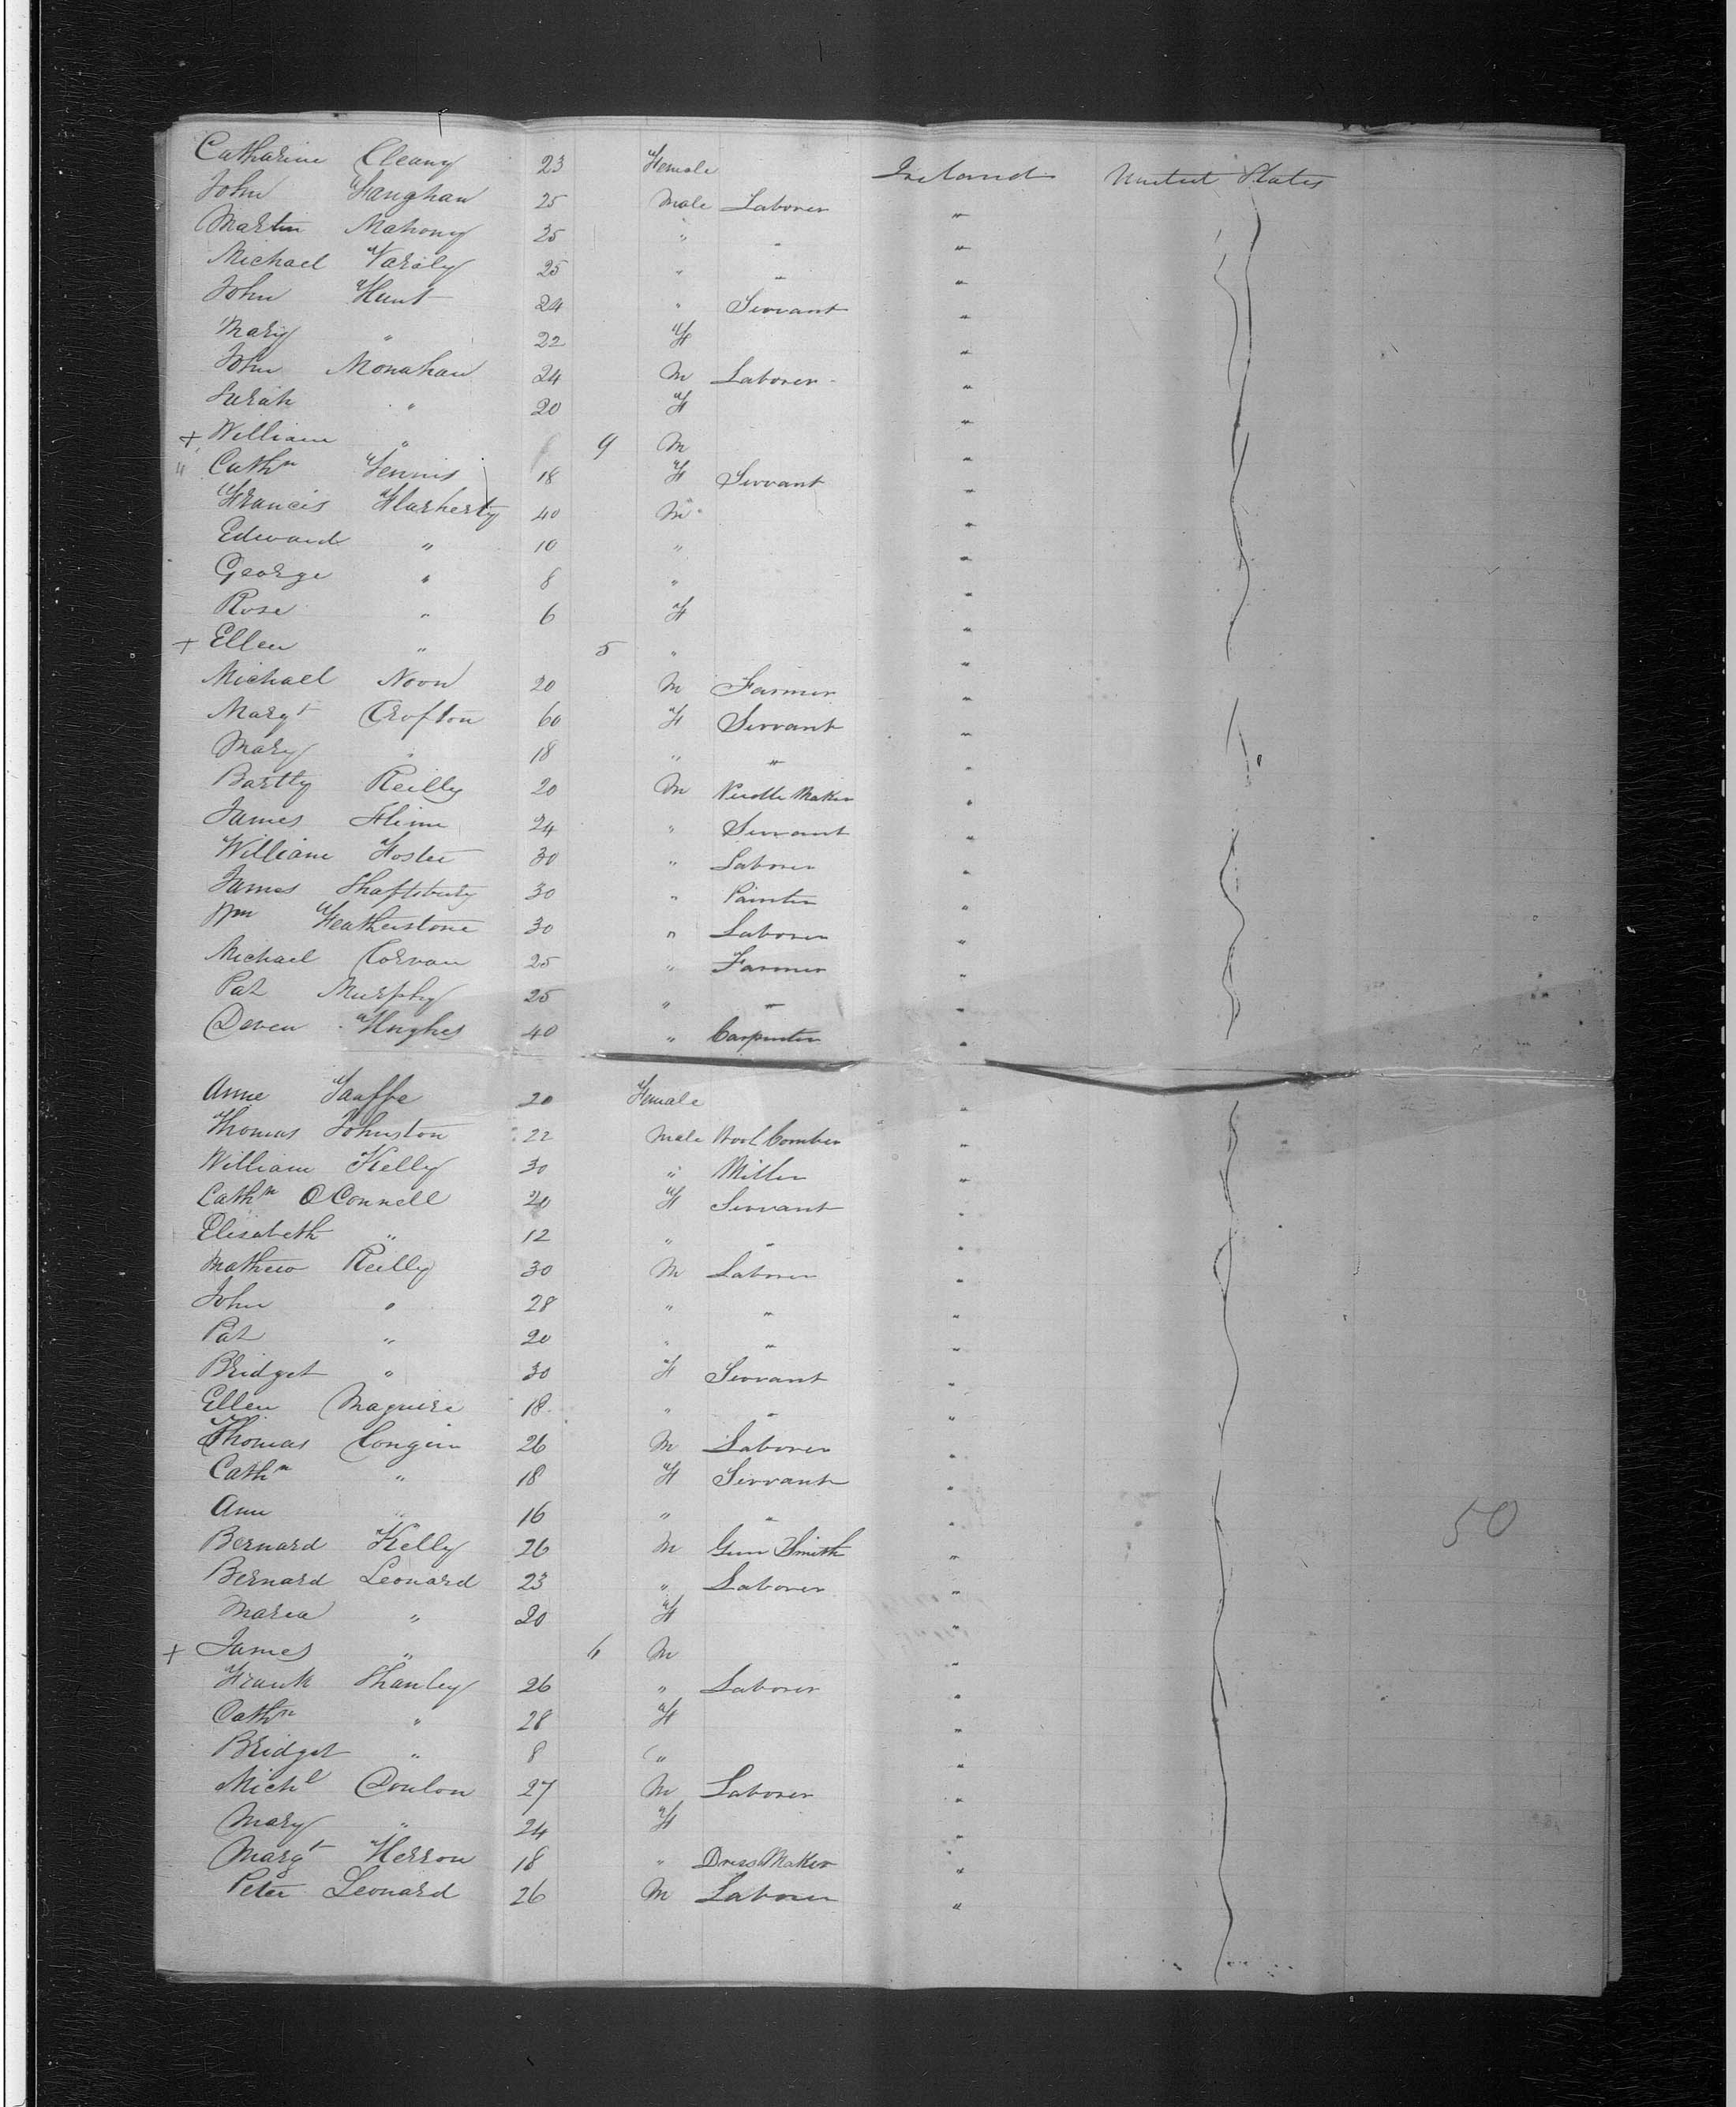 Catharine Cleary 23 Female Ireland United States
John Fanghan 25 Male Laborer "
Martin Mahony 35 " " "
Michael Varily 25 " " "
John Hunt 24 " Servant "
Mary " 22 F "
John Monahan 24 M Laborer "
Sarah " 20 F "
+ William " 9 M "
" Cathn Fennis 18 F Servant "
Francis Flarherty 40 M "
Edward " 10 " "
George " 8 " "
Rose " 6 F "
+ Ellen " 5 " "
Michael Noon 20 M Farmer "
Margt Crofton 60 F Servant "
Mary " 18 " " "
Bartly Reilly 20 M Needle Maker "
James Flinn 24 " Servant "
William Foster 30 " Laborer "
James Shaftsbury 30 " Painter "
Wm Featherstone 30 " Laborer "
Michael Corvan 25 " Farmer "
Pat Murphy 25 " " "
Hughes 40 " Carpenter "
Anne 20 Female "
Thomas Johnston 22 Male Wool Comber "
William Kelly 30 " Miller "
Cathn O Connell 20 F Servant "
Elisabeth " 12 " " "
Mathew Reilly 30 M Laborer "
John " 28 " " "
Pat " 20 " " "
Bridget " 30 F Servant "
Ellen Maguire 18 " " "
Thomas Congin 26 M Laborer "
Cathn " 18 F Servant "
Ann " 16 " " "
50
Bernard Kelly 26 M Gun Smith "
Bernard Leonard 23 " Laborer "
Maria " 20 F "
+ James " 6 M "
Frank Shanley 26 " Laborer "
Cathn " 28 F "
Bridget " 8 " "
Michl Conlon 27 M Laborer "
Mary " 24 F "
Margt Herron 18 " Dress Maker "
Peter Leonard 26 M Laborer "